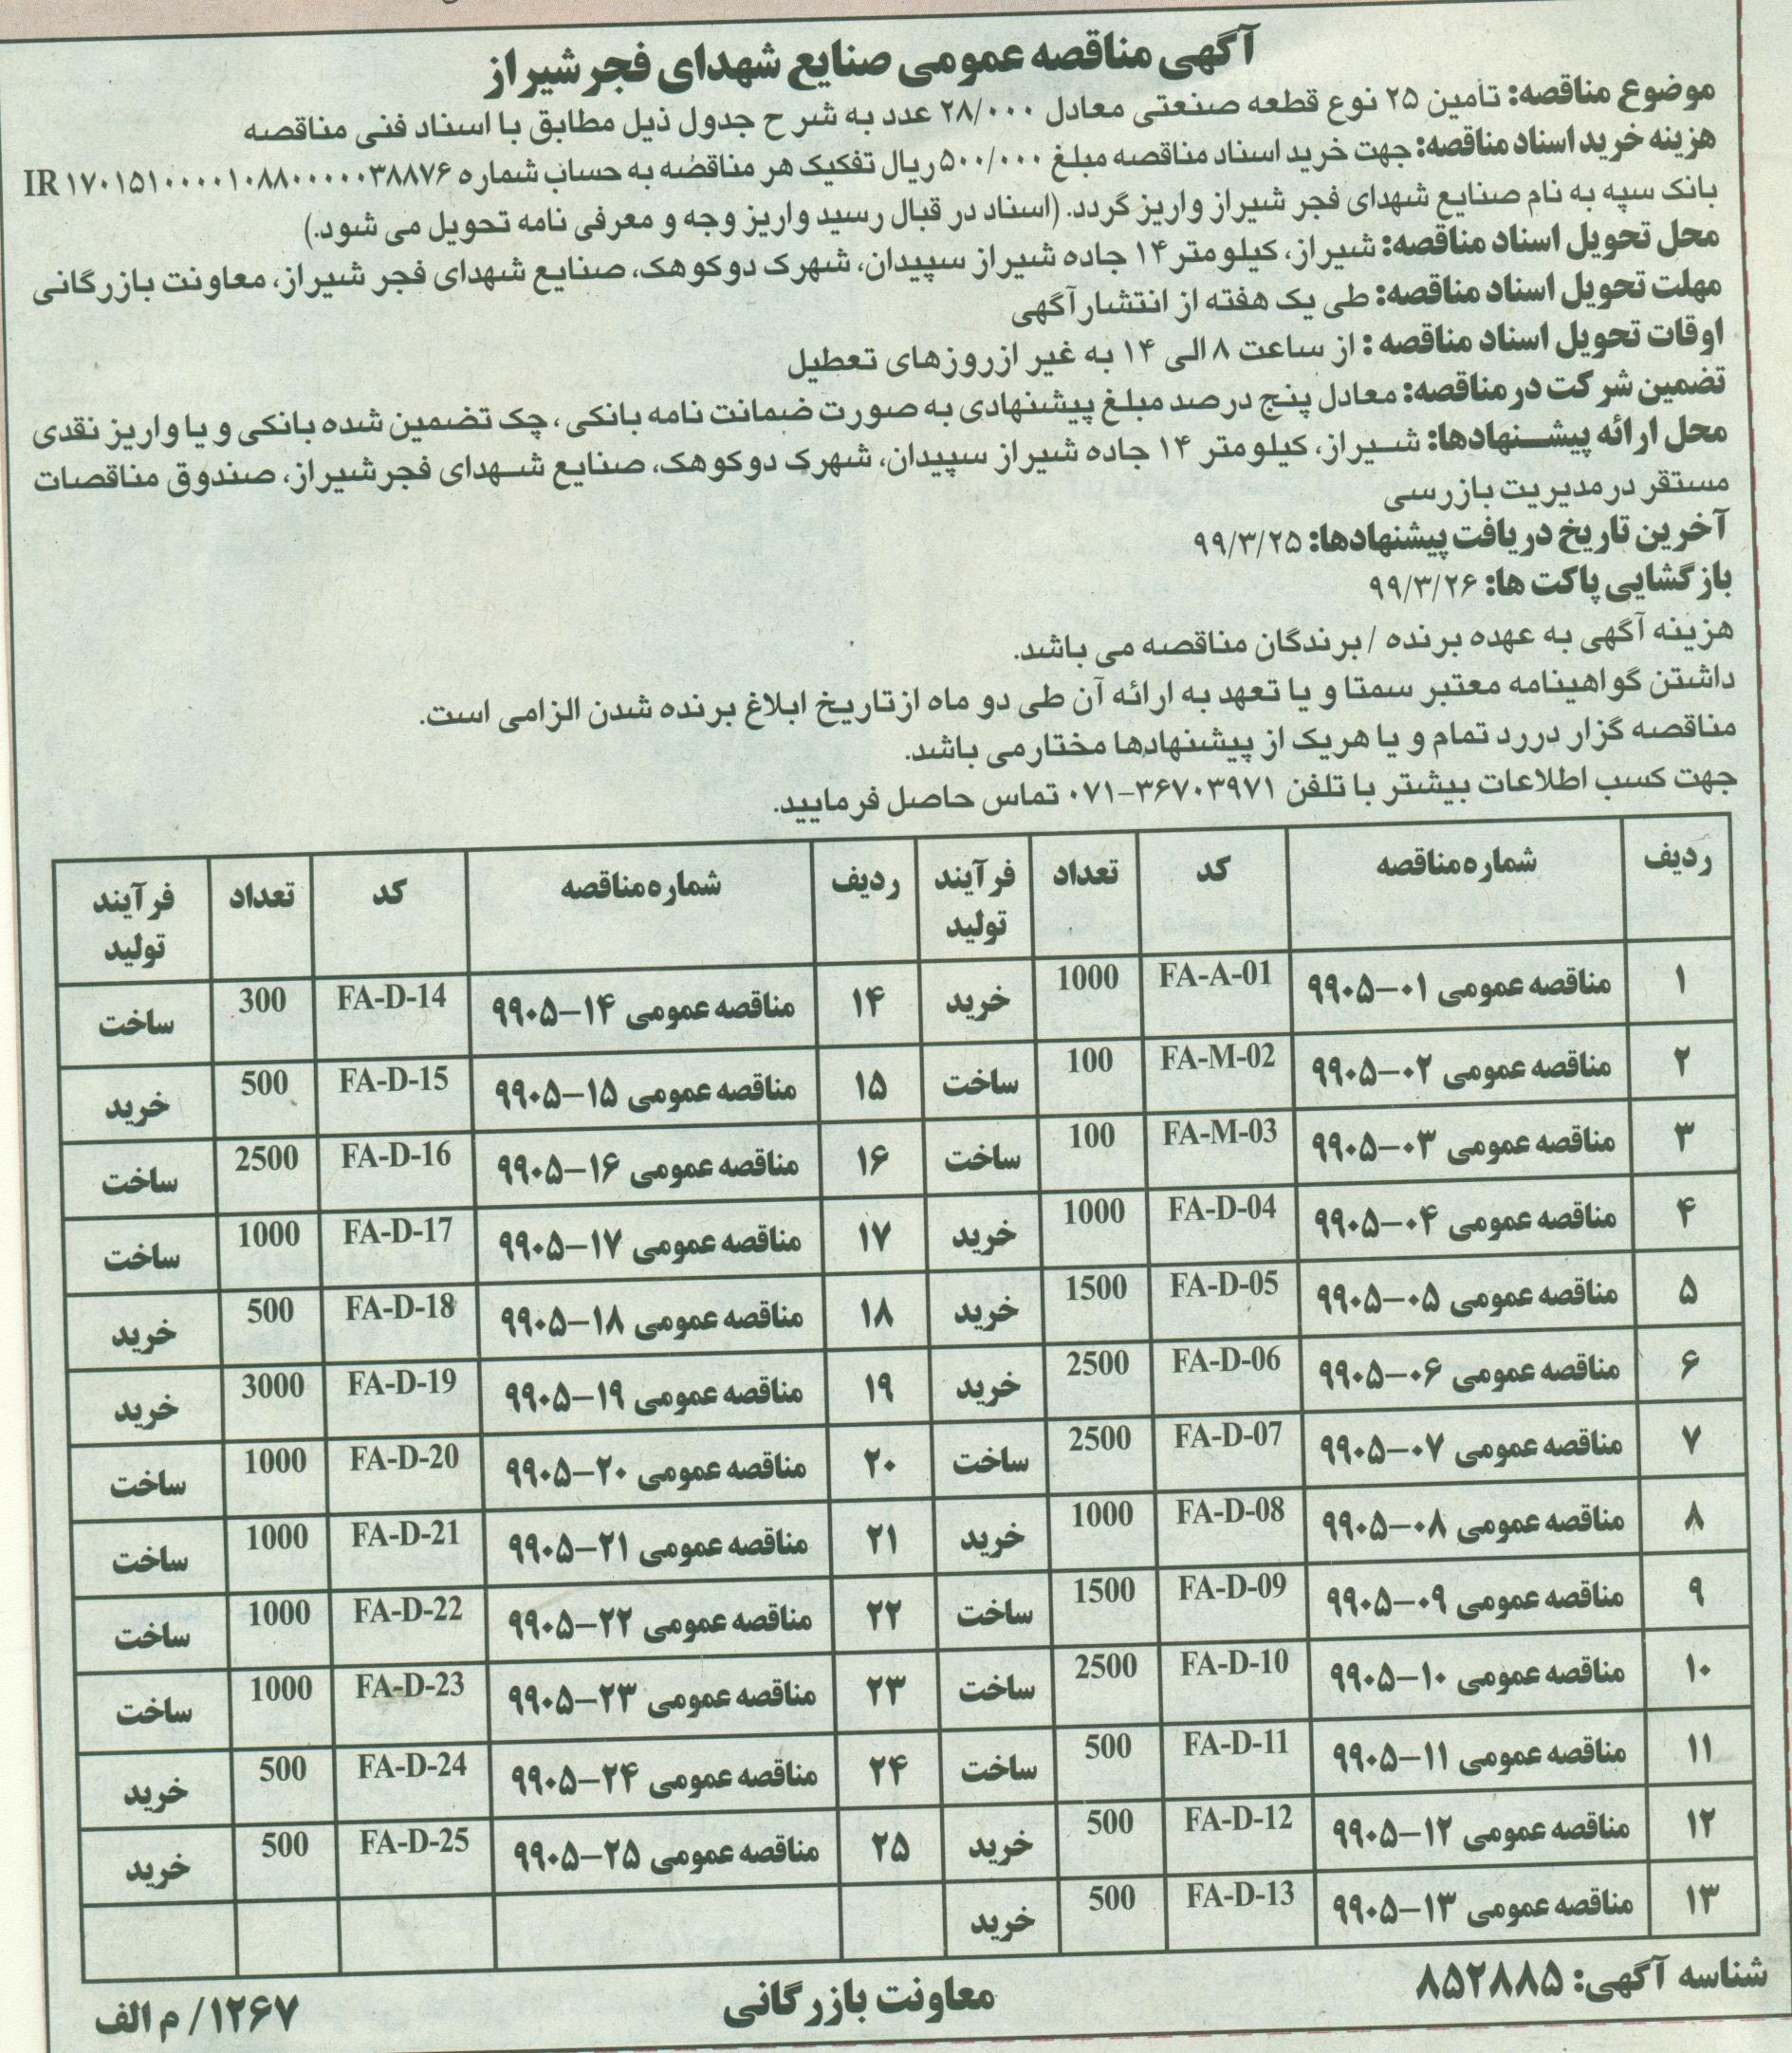 آگهی مناقصه عمومی صنایع شهدای فجر شیراز
موضوع مناقصه: تأمین ۲۵ نوع قطعه صنعتی معادل ۲۸/۰۰۰ عدد به شرح جدول ذیل مطابق با اسناد فنی مناقصه
هزینه خرید اسناد مناقصه: جهت خرید اسناد مناقصه مبلغ ۵۰۰/۰۰۰ ریال تفکیک هر مناقصه به حساب شماره IR ۱۷۰۱۵۱۰۰۰۰۰۱۰۸۸۰۰۰۰۰۳۸۸۷۶
بانک سپه به نام صنایع شهدای فجر شیراز واریز گردد. (اسناد در قبال رسید واریز وجه و معرفی نامه تحویل می شود.)
محل تحویل اسناد مناقصه: شیراز، کیلومتر ۱۴ جاده شیراز سپیدان، شهرک دوکوهک، صنایع شهدای فجر شیراز، معاونت بازرگانی
مهلت تحویل اسناد مناقصه: طی یک هفته از انتشار آگهی
اوقات تحویل اسناد مناقصه : از ساعت ۸ الی ۱۴ به غیر از روزهای تعطیل
تضمین شرکت در مناقصه: معادل پنج درصد مبلغ پیشنهادی به صورت ضمانت نامه بانکی ، چک تضمین شده بانکی و یا واریز نقدی
محل ارائه پیشنهادها: شیراز، کیلومتر ۱۴ جاده شیراز سپیدان، شهرک دوکوهک، صنایع شهدای فجر شیراز، صندوق مناقصات
مستقر در مدیریت بازرسی
آخرین تاریخ دریافت پیشنهادها: ۹۹/۳/۲۵
بازگشایی پاکت ها: ۹۹/۳/۲۶
هزینه آگهی به عهده برنده / برندگان مناقصه می باشد.
داشتن گواهینامه معتبر سمتا و یا تعهد به ارائه آن طی دو ماه از تاریخ ابلاغ برنده شدن الزامی است.
مناقصه گزار در رد تمام و یا هر یک از پیشنهادها مختار می باشد.
جهت کسب اطلاعات بیشتر با تلفن ۳۶۷۰۳۹۷۱-۰۷۱ تماس حاصل فرمایید.
ردیف شماره مناقصه کد تعداد فرآیند تولید ردیف شماره مناقصه کد تعداد فرآیند تولید
۱ مناقصه عمومی ۰۱–۹۹۰۵ FA-A-01 1000 خرید ۱۴ مناقصه عمومی ۱۴–۹۹۰۵ FA-D-14 300 ساخت
۲ مناقصه عمومی ۰۲–۹۹۰۵ FA-M-02 100 ساخت ۱۵ مناقصه عمومی ۱۵–۹۹۰۵ FA-D-15 500 خرید
۳ مناقصه عمومی ۰۳–۹۹۰۵ FA-M-03 100 ساخت ۱۶ مناقصه عمومی ۱۶–۹۹۰۵ FA-D-16 2500 ساخت
۴ مناقصه عمومی ۰۴–۹۹۰۵ FA-D-04 1000 خرید ۱۷ مناقصه عمومی ۱۷–۹۹۰۵ FA-D-17 1000 ساخت
۵ مناقصه عمومی ۰۵–۹۹۰۵ FA-D-05 1500 خرید ۱۸ مناقصه عمومی ۱۸–۹۹۰۵ FA-D-18 500 خرید
۶ مناقصه عمومی ۰۶–۹۹۰۵ FA-D-06 2500 خرید ۱۹ مناقصه عمومی ۱۹–۹۹۰۵ FA-D-19 3000 خرید
۷ مناقصه عمومی ۰۷–۹۹۰۵ FA-D-07 2500 ساخت ۲۰ مناقصه عمومی ۲۰–۹۹۰۵ FA-D-20 1000 ساخت
۸ مناقصه عمومی ۰۸–۹۹۰۵ FA-D-08 1000 خرید ۲۱ مناقصه عمومی ۲۱–۹۹۰۵ FA-D-21 1000 ساخت
۹ مناقصه عمومی ۰۹–۹۹۰۵ FA-D-09 1500 ساخت ۲۲ مناقصه عمومی ۲۲–۹۹۰۵ FA-D-22 1000 ساخت
۱۰ مناقصه عمومی ۱۰–۹۹۰۵ FA-D-10 2500 ساخت ۲۳ مناقصه عمومی ۲۳–۹۹۰۵ FA-D-23 1000 ساخت
۱۱ مناقصه عمومی ۱۱–۹۹۰۵ FA-D-11 500 ساخت ۲۴ مناقصه عمومی ۲۴–۹۹۰۵ FA-D-24 500 خرید
۱۲ مناقصه عمومی ۱۲–۹۹۰۵ FA-D-12 500 خرید ۲۵ مناقصه عمومی ۲۵–۹۹۰۵ FA-D-25 500 خرید
۱۳ مناقصه عمومی ۱۳–۹۹۰۵ FA-D-13 500 خرید
شناسه آگهی: ۸۵۲۸۸۵ معاونت بازرگانی ۱۲۶۷/ م الف